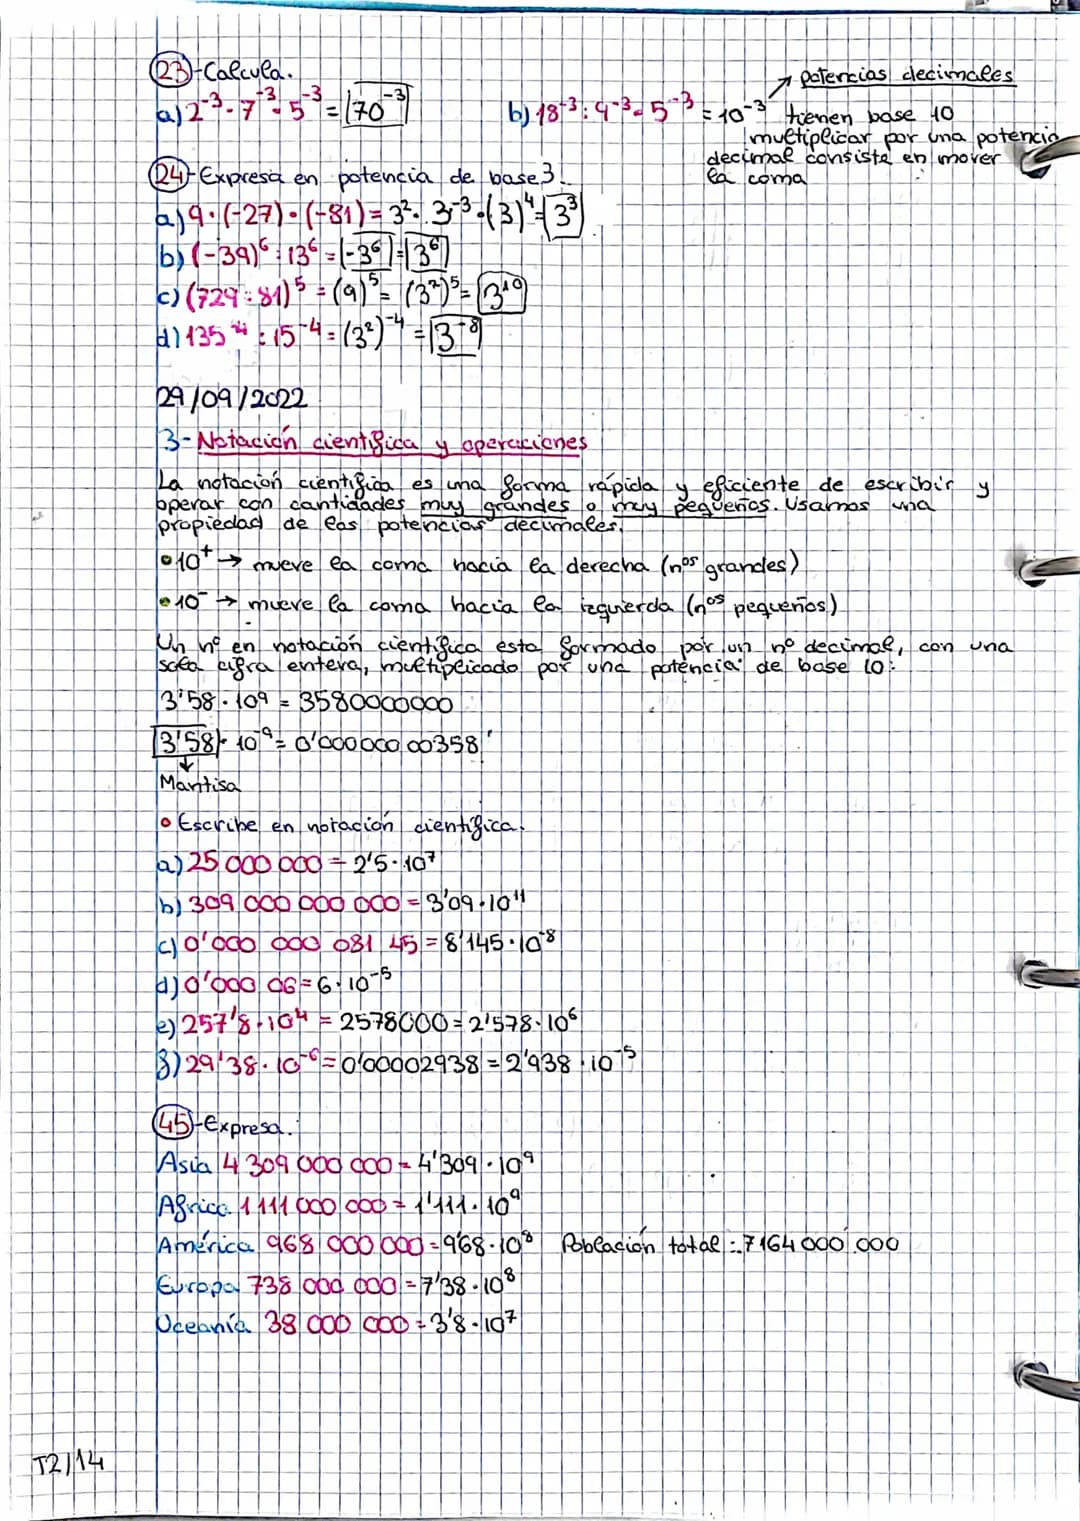 23-Calcula.
a) 2⁻³·7⁻³·5⁻³ = 70⁻³
b) 18⁻³:9⁻³·5⁻³ = 10⁻³
→ potencias decimales
tienen base 10
multiplicar por una potencia
decimal consiste en mover
la coma
24-Expresa en potencia de base 3.
a) 9·(-27)·(-81) = 3²·3⁻³·(3)⁴ = 3³
b) (-39)⁶:13⁶ = -3⁶ = 3⁶
c) (729:81)⁵ = (9)⁵ = (3²)⁵ = 3¹⁰
d) 135⁻⁴:15⁻⁴ = (3²)⁻⁴ = 3⁻⁸
29/09/2022
3-Notación científica y operaciones
La notación científica es una forma rápida y eficiente de escribir y
operar con cantidades muy grandes o muy pequeños. Usamos una
propiedad de las potencias decimales.
•10⁺ → mueve la coma hacia la derecha (nºs grandes)
•10⁻ → mueve la coma hacia la izquierda (nºs pequeños)
Un nº en notación científica esta formado por un nº decimal, con una
sola cifra entera, multiplicado por una potencia de base 10:
3'58·10⁹ = 3580000000
3'58·10⁻⁹ = 0'00000000358
↓
Mantisa
•Escribe en notación científica.
a) 25 000 000 = 2'5·10⁷
b) 309 000 000 000 = 3'09·10¹¹
c) 0'000 000 081 45 = 8'145·10⁻⁸
d) 0'000 06 = 6·10⁻⁵
e) 257'8·10⁴ = 2578000 = 2'578·10⁶
f) 29'38·10⁻⁶ = 0'00002938 = 2'938·10⁻⁵
45-Expresa.
Asia 4 309 000 000 = 4'309·10⁹
Africa 1 111 000 000 = 1'111·10⁹
América 968 000 000 = 9'68·10⁸ Población total = 7 164 000 000
Europa 738 000 000 = 7'38·10⁸
Oceanía 38 000 000 = 3'8·10⁷
T2/14